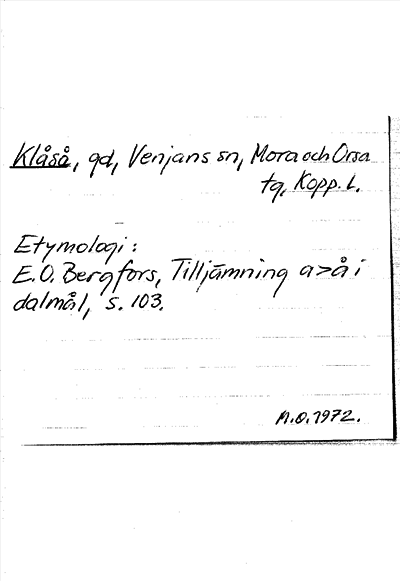 Klåså, gd, Venjans sn, Mora och Orsa
tg, Kopp. L.
Etymologi:
E.O. Bergfors, Tilljämning a>å i
dalmål, s. 103.
A.O. 1972.